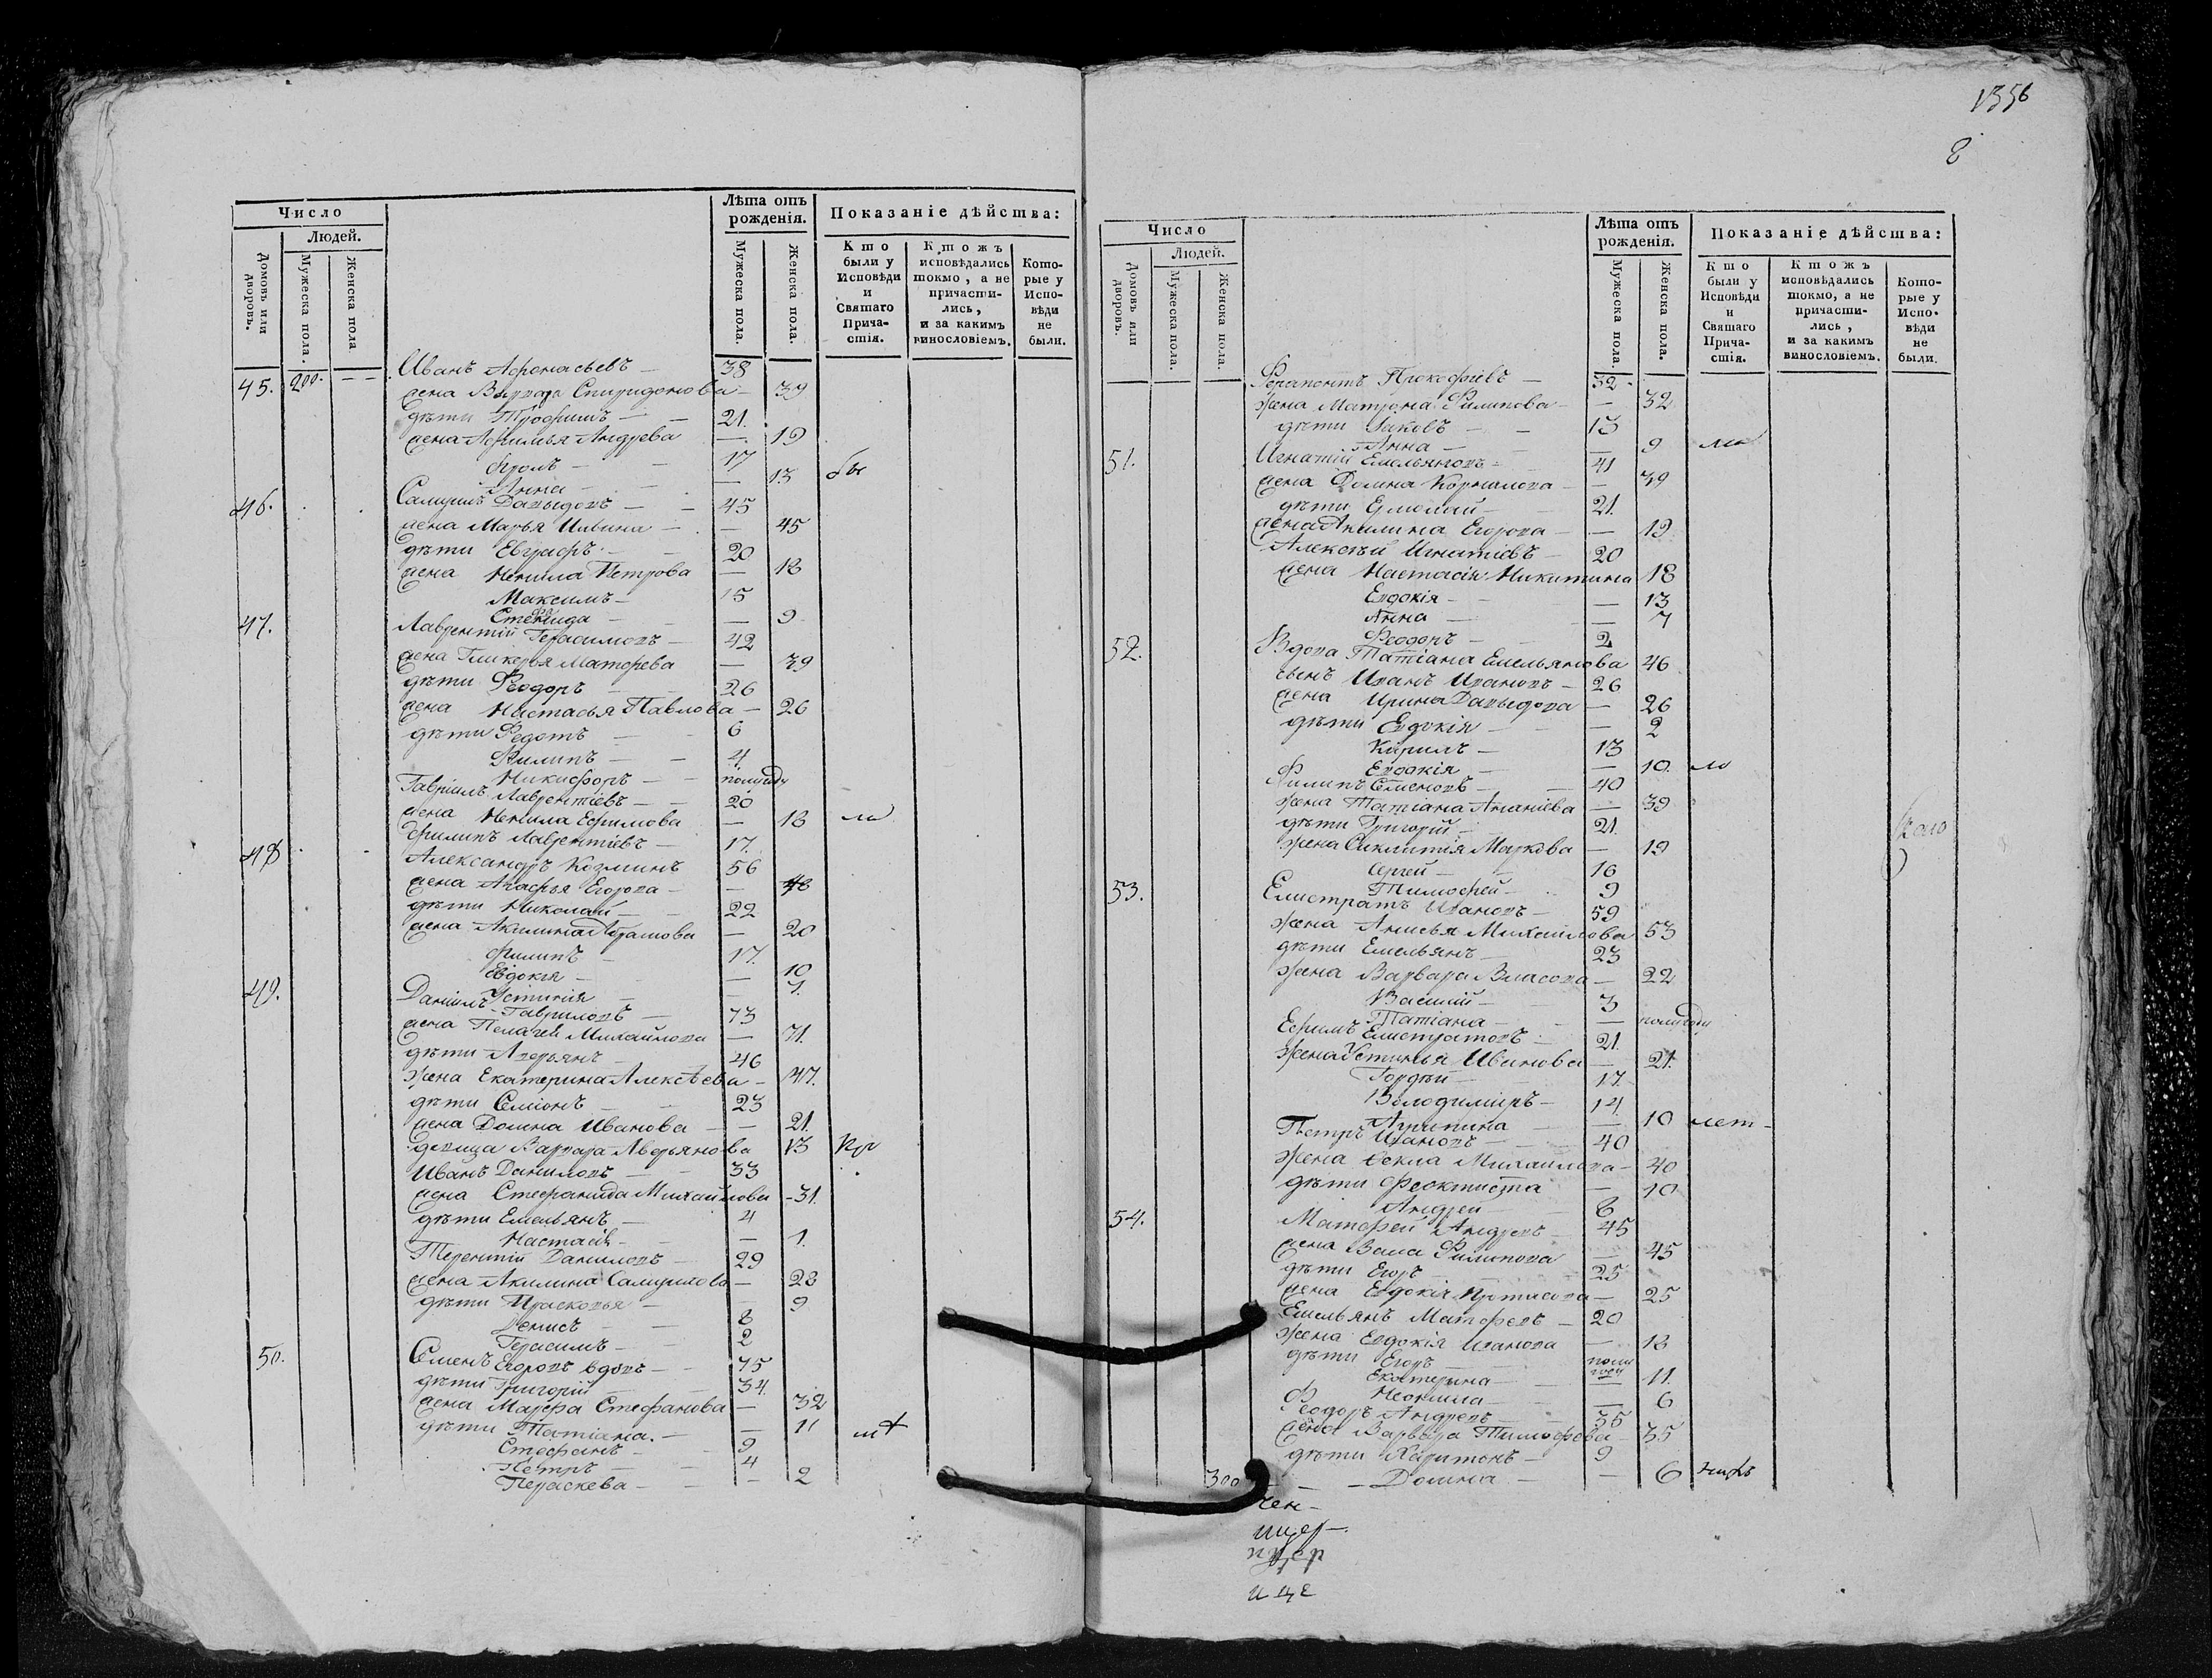 1356
8
Число
Людей.
Домовъ или дворовъ.
Мужеска пола.
Женска пола
Лѣта отъ рожденія.
Мужеска пола.
Женска пола.
Показаніе дѣйства:
Кто были у Исповѣди и Святаго Причастія.
Ктожъ исповѣдались токмо, а не причастились, и за какимъ винословіемъ.
Которые у Исповѣди не были.
45. 200. Иванъ Афонасьевъ 38
жена Варвара Спиридонова 39
дѣти Трофимъ 21.
жена Афимья Андрева 19
Фролъ 17
Анна 13 бы
46. Самуилъ Давыдовъ 45
жена Марья Ильина 45
дѣти Евграфъ 20
жена Ненила Петрова 18
Максимъ 15
Стефанида 9
47. Лаврентій Герасимовъ 42
жена Гликерья Матфева 39
дѣти Феодоръ 26
жена Настасья Павлова 26
дѣти Федотъ 6
Филипъ 4
Никифоръ полугоду
Гавріилъ Лаврентіевъ 20
жена Ненила Ефимова 18 ли
Филипъ Лаврентіевъ 17.
48 Александръ Козминъ 56
жена Агафья Егорова 48
дѣти Николай 22
жена Акилина Абрамова 20
Филипъ 17.
Евдокія 10
Устинія 7.
49. Даніилъ Гавриловъ 73
жена Пелагея Михайлова 71.
дѣти Аверьянъ 46
жена Екатерина Алексѣева 47.
дѣти Семіонъ 23
жена Домна Иванова 21.
дѣвица Варвара Аверьянова 13
Иванъ Даниловъ 33
жена Стефанида Михайлова 31.
дѣти Емельянъ 4
Настасія 1.
Терентій Даниловъ 29
жена Акилина Самуилова 28
дѣти Прасковья 9
Денисъ 8
Герасимъ 2
50. Семенъ Егоровъ вдовъ 75
дѣти Григорій 34.
жена Марфа Стефанова 32
дѣти Татіана. 11
Стефанъ 9
Петръ 4
Параскева 2
Число
Людей.
Домовъ или дворовъ.
Мужеска пола.
Женска пола.
Лѣта отъ рожденія.
Мужеска пола.
Женска пола.
Показаніе дѣйства:
Кто были у Исповѣди и Святаго Причастія.
Ктожъ исповѣдались токмо, а не причастились, и за какимъ винословіемъ.
Которые у Исповѣди не были.
Ферапонтъ Прокофіевъ 32
жена Матрона Филипова 32
дѣти Іаковъ 13
Анна 9
51. Игнатій Емельяновъ 41
жена Домна Корнилова 39
дѣти Ермолай 21.
жена Акилина Егорова 19
Алексѣй Игнатіевъ 20
жена Настасія Никитина 18
Евдокія 13
Анна 7
Феодоръ 2
52. Вдова Татіана Емельянова 46
сынъ Иванъ Ивановъ 26
жена Ирина Давыдова 26
дѣти Евдокія 2
Кирилъ 13
Евдокія 10. ли
Филипъ Семеновъ 40
жена Татіана Ананіева 39
дѣти Григорій 21.
жена Сиклитія Маркова 19
Сергей 16
Тимофей 9
53. Елистратъ Ивановъ 59
жена Анисья Михайлова 53
дѣти Емельянъ 23
жена Варвара Власова 22
Василій 3
Татіана полугоду
Ефимъ Елистратовъ 21.
жена Устинья Иванова 21.
Гордѣй 17.
Володиміръ 14
Агрипина 10
Петръ Ивановъ 40
жена Фекла Михайлова 40
дѣти Феоктиста 10
Андрей 6
54. Матфей Андревъ 45
жена Васа Филипова 45
дѣти Егоръ 25
жена Евдокія 25
Емельянъ Матфевъ 20
жена Евдокія Иванова 18
дѣти Егоръ полугоду
Екатерина 11.
Неонила 6
Феодоръ Андревъ 35
жена Варвара Тимофева 35
дѣти Харитонъ 9
300 Домна 6
чен-
ищер
и це